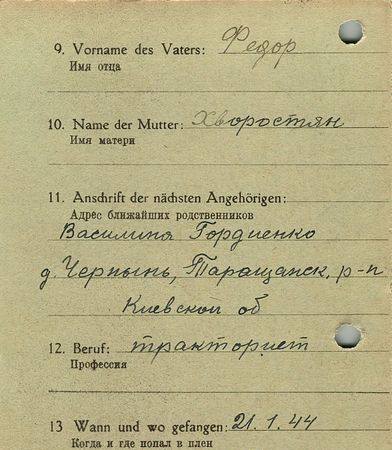 9. Vorname des Vaters: Федор
Имя отца
10. Name der Mutter: Хворостян
Имя матери
11. Anschrift der nächsten Angehörigen:
Адрес ближайших родственников
Гордиенко
д. Черпынь, Таращанск. р-н
Киевской об
12. Beruf: тракторист
Профессия
13 Wann und wo gefangen: 21.1.44
Когда и где попал в плен